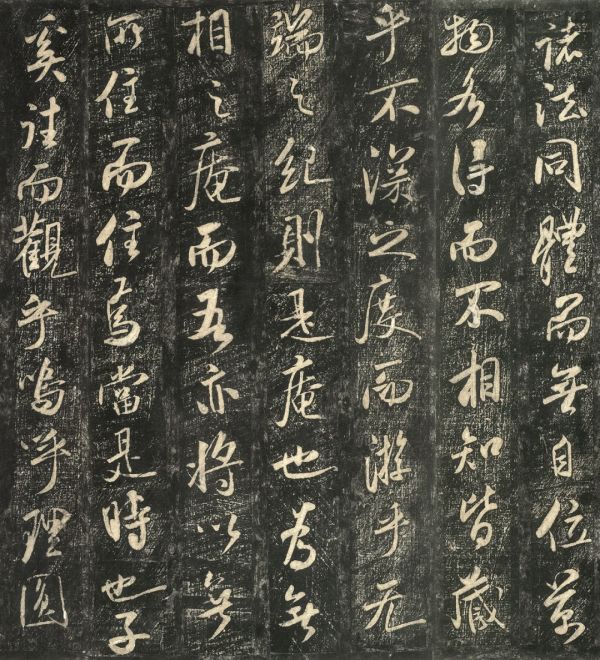 諸法同體而無自位萬
物各得而不相知皆藏
乎不深之度而游乎无
端之紀則是庵也為無
相之庵而吾亦將以無
所住而住焉當是時也子
奚往而觀乎嗚呼理圓